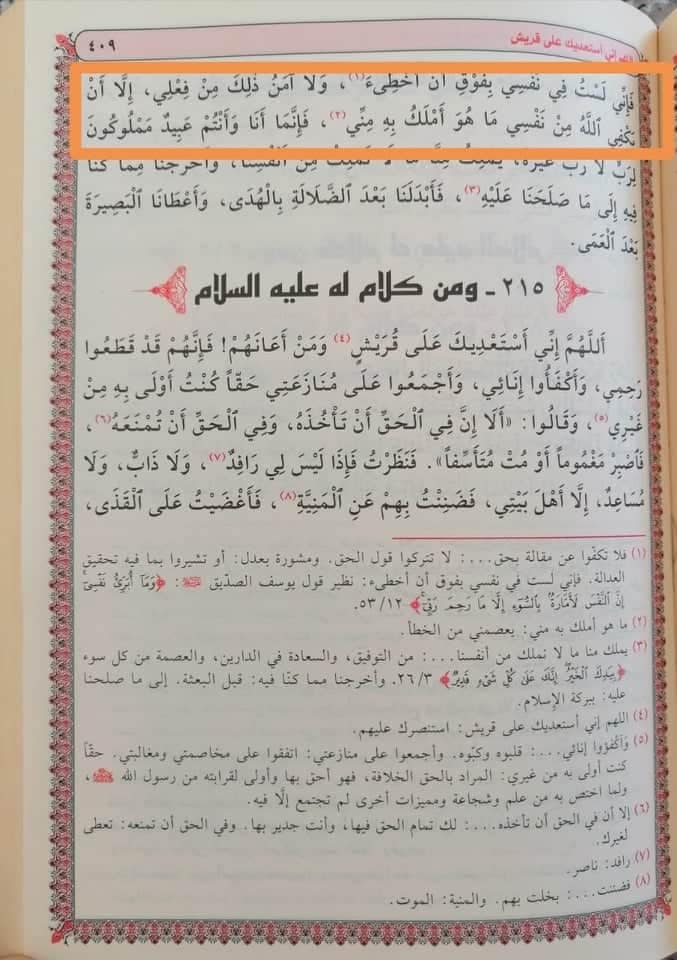 ٤٠٩
اللهم إني أستعديك على قريش
فَإِنِّي لَسْتُ فِي نَفْسِي بِفَوْقِ أَنْ أُخْطِىءَ(١)، وَلَا آمَنُ ذَلِكَ مِنْ فِعْلِي، إِلَّا أَنْ
يَكْفِيَ اللَّهُ مِنْ نَفْسِي مَا هُوَ أَمْلَكُ بِهِ مِنِّي(٢)، فَإِنَّمَا أَنَا وَأَنْتُمْ عَبِيدٌ مَمْلُوكُونَ
لِرَبٍّ لَا رَبَّ غَيْرُهُ، يَمْلِكُ مِنَّا مَا لَا نَمْلِكُ مِنْ أَنْفُسِنَا، وَأَخْرَجَنَا مِمَّا كُنَّا
فِيهِ إِلَى مَا صَلَحْنَا عَلَيْهِ(٣)، فَأَبْدَلَنَا بَعْدَ الضَّلَالَةِ بِالْهُدَى، وَأَعْطَانَا الْبَصِيرَةَ
بَعْدَ الْعَمَى.
٢١٥ - ومن كلام له عليه السلام
اَللَّهُمَّ إِنِّي أَسْتَعْدِيكَ عَلَى قُرَيْشٍ(٤) وَمَنْ أَعَانَهُمْ! فَإِنَّهُمْ قَدْ قَطَعُوا
رَحِمِي، وَأَكْفَأُوا إِنَائِي، وَأَجْمَعُوا عَلَى مُنَازَعَتِي حَقّاً كُنْتُ أَوْلَى بِهِ مِنْ
غَيْرِي(٥)، وَقَالُوا: «أَلَا إِنَّ فِي الْحَقِّ أَنْ تَأْخُذَهُ، وَفِي الْحَقِّ أَنْ تُمْنَعَهُ(٦)،
فَاصْبِرْ مَغْمُوماً أَوْ مُتْ مُتَأَسِّفاً». فَنَظَرْتُ فَإِذَا لَيْسَ لِي رَافِدٌ(٧)، وَلَا ذَابٌّ، وَلَا
مُسَاعِدٌ، إِلَّا أَهْلَ بَيْتِي، فَضَنِنْتُ بِهِمْ عَنِ الْمَنِيَّةِ(٨)، فَأَغْضَيْتُ عَلَى الْقَذَى،
(١) فلا تكفّوا عن مقالة بحق...: لا تتركوا قول الحق. ومشورة بعدل: أو تشيروا بما فيه تحقيق
العدالة. فإني لست في نفسي بفوق أن أخطىء: نظير قول يوسف الصدّيق ﷺ: ﴿وَمَآ أُبَرِّئُ نَفْسِىٓ
إِنَّ ٱلنَّفْسَ لَأَمَّارَةٌۢ بِٱلسُّوٓءِ إِلَّا مَا رَحِمَ رَبِّىٓ﴾ ٥٣/١٢.
(٢) ما هو أملك به مني: يعصمني من الخطأ.
(٣) يملك منا ما لا نملك من أنفسنا...: من التوفيق، والسعادة في الدارين، والعصمة من كل سوء
﴿بِيَدِكَ ٱلْخَيْرُ إِنَّكَ عَلَىٰ كُلِّ شَىْءٍ قَدِيرٌ﴾ ٢٦/٣. وأخرجنا مما كنّا فيه: قبل البعثة. إلى ما صلحنا
عليه: ببركة الإسلام.
(٤) اللهم إني أستعديك على قريش: استنصرك عليهم.
(٥) وأكفؤوا إنائي...: قلبوه وكبّوه. وأجمعوا على منازعتي: اتفقوا على مخاصمتي ومغالبتي. حقاً
كنت أولى به من غيري: المراد بالحق الخلافة، فهو أحق بها وأولى لقرابته من رسول الله ﷺ،
ولما اختص به من علم وشجاعة ومميزات أخرى لم تجتمع إلّا فيه.
(٦) إلا أن في الحق أن تأخذه...: لك تمام الحق فيها، وأنت جدير بها. وفي الحق أن تمنعه: تعطى
لغيرك.
(٧) رافد: ناصر.
(٨) فضننت...: بخلت بهم. والمنية: الموت.